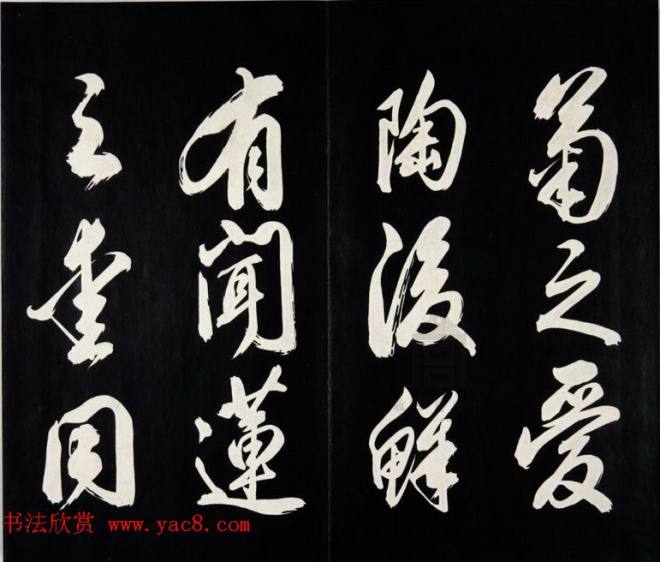 菊之愛
陶後鮮
有聞蓮
之愛同
书法欣赏 www.yac8.com